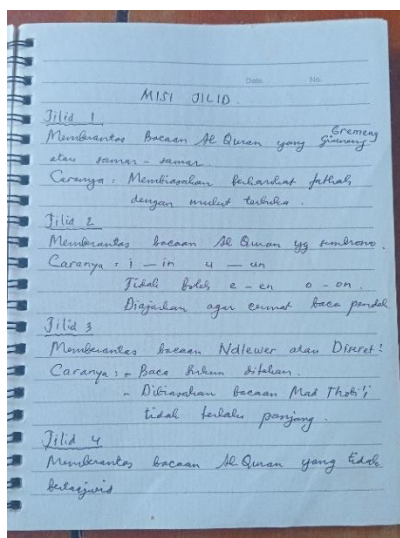 Date. No.
MISI JILID.
Jilid 1
Memberantas Bacaan Al Quran yang Gremeng
atau samar - samar.
Caranya : Membiasakan berharokat fathah
dengan mulut terbuka.
Jilid 2
Memberantas bacaan Al Quran yg sembrono.
Caranya : i – in u – un
Tidak boleh e – en o – on.
Diajarkan agar cermat baca pendek
Jilid 3
Memberantas bacaan Ndlewer atau Diseret!
Caranya : - Baca sukun ditekan.
- Dibiasakan bacaan Mad Thobi'i
tidak terlalu panjang.
Jilid 4
Memberantas bacaan Al Quran yang tidak
bertajwid